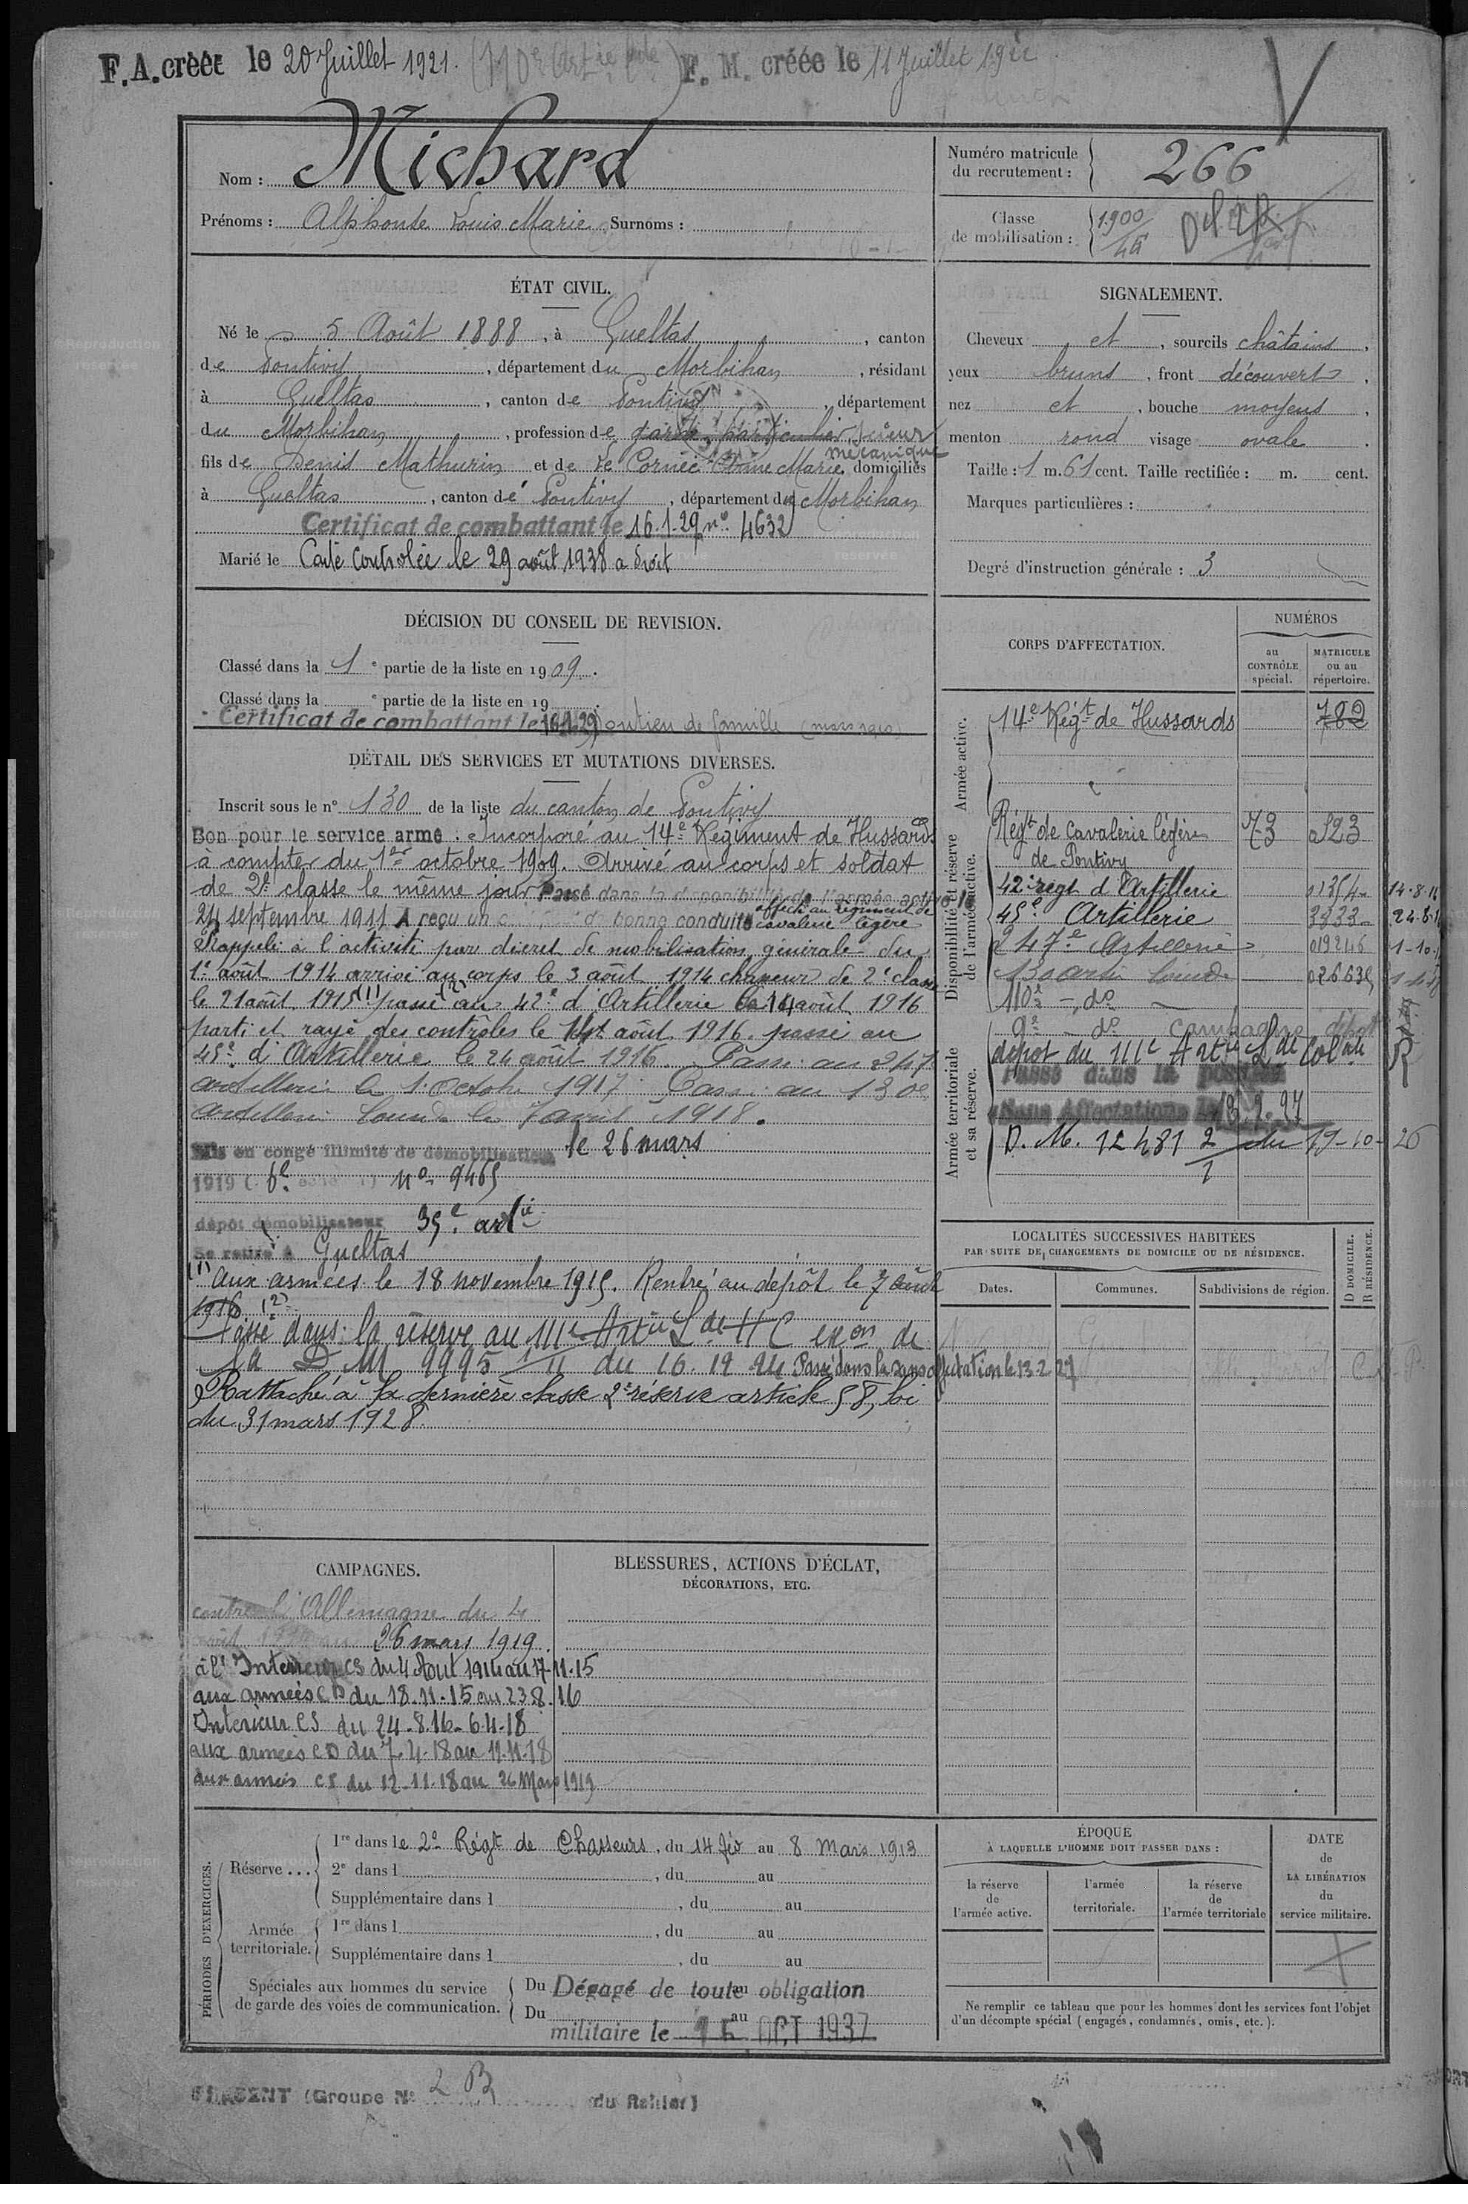 F.A. créée le 20 Juillet 1921. F. M. créée le 11 Juillet
Nom : Michard
Prénoms : Alphonse Louis Marie Surnoms :
Numéro matricule du recrutement : 266
Classe de mobilisation : 1900
ÉTAT CIVIL.
Né le 5 Août 1888, à Gueltas, canton
de Pontivy, département du Morbihan, résidant
à Gueltas, canton de Pontivy, département
du Morbihan, profession de garde particulier scieur
mécanique
fils de Denis Mathurin et de Le Cornec Marie domiciliés
à Gueltas, canton de Pontivy, département du Morbihan
Certificat de combattant le 16-1-29 n° 4632
Marié le Carte Contrôlée le 29 août 1938 a droit
SIGNALEMENT.
Cheveux et, sourcils châtains,
yeux bruns, front découvert,
nez et, bouche moyens,
menton rond visage ovale.
Taille : 1 m. 61 cent. Taille rectifiée : m. cent.
Marques particulières :
Degré d'instruction générale : 3
DÉCISION DU CONSEIL DE REVISION.
Classé dans la 1e partie de la liste en 1909.
Classé dans la e partie de la liste en 19
Certificat de combattant le 16.1.29 Soutien de famille (mars 1910)
DÉTAIL DES SERVICES ET MUTATIONS DIVERSES.
Inscrit sous le n° 130 de la liste du canton de Pontivy
Bon pour le service armé : Incorporé au 14e Régiment de Hussards
à compter du 1er octobre 1909. Arrivé au corps et soldat
de 2e classe le même jour Passé dans la disponibilité de l'armée active le
24 septembre 1911 A reçu un de bonne conduite affecté au régiment de
cavalerie légère
Rappelé à l'activité par décret de mobilisation générale du
1er août 1914 arrivé au corps le 3 août 1914 chasseur de 2e classe
le 21 août 1915 (1) passé (2) au 42e d'Artillerie le 14 août 1916
parti et rayé des contrôles le 14 août 1916 passé au
45e d'Artillerie le 24 août 1916. Passé au 247e
artillerie le 1 Octobre 1917 Passé au 130e
artillerie lourde le 7 avril 1918.
Mis en congé illimité de démobilisation le 26 mars
1919 6e n° 9465
dépôt démobilisateur 35e artie
Se retire à Gueltas
(1) aux armées le 18 novembre 1915. Rentré au dépôt le 7 août
1916 (2)
Passé dans la réserve au 111e Artie Lde H C exon de
la D M 9995 1/11 du 16.12 24 Passé dans la sans affectation le 13-2 27
Rattaché à la dernière classe 2e réserve article 58, loi
du 31 mars 1928
CORPS D'AFFECTATION.
NUMÉROS
au CONTRÔLE spécial.
MATRICULE ou au répertoire.
Armée active.
14e Régt de Hussards 782
Disponibilité et réserve de l'armée active.
Régt de cavalerie légère 73 523
de Pontivy
42e régt d'Artillerie 11354 14-8-16
45e Artillerie 3833 24-8-16
247e Artillerie 019246 1-10-
130 arti lourde
110e - do -
Armée territoriale et sa réserve.
9e - do Campagne dépôt
dépôt du 111e Artie Lde Colale
Passé dans la position
Sans Affectation le 13.2.27
D. M. 12481 2/1 du 19-10-26
LOCALITÉS SUCCESSIVES HABITÉES
PAR SUITE DE CHANGEMENTS DE DOMICILE OU DE RÉSIDENCE.
Dates. Communes. Subdivisions de région. D DOMICILE. R RÉSIDENCE.
CAMPAGNES.
contre l'Allemagne du 4
août 1914 au 26 mars 1919.
à l'Intérieur CS du 4 Aout 1914 au 17-11-15
aux armées CD du 18-11-15 au 23.8.16
Intérieur CS du 24-8.16-6-4-18
aux armées CD du 7-4-18 au 11-11-18
aux armées CS du 12-11-18 au 26 Mars 1919
BLESSURES, ACTIONS D'ÉCLAT,
DÉCORATIONS, ETC.
PÉRIODES D'EXERCICES.
Réserve ... 1re dans le 2e Régt de Chasseurs, du 14 fév au 8 Mars 1913
2e dans l, du au
Supplémentaire dans l, du au
Armée territoriale. 1re dans l, du au
Supplémentaire dans l, du au
Spéciales aux hommes du service de garde des voies de communication. Du au
Dégagé de toute obligation
Du au
militaire le 15 OCT 1937
ÉPOQUE
À LAQUELLE L'HOMME DOIT PASSER DANS :
la réserve de l'armée active.
l'armée territoriale.
la réserve de l'armée territoriale
DATE de LA LIBÉRATION du service militaire.
Ne remplir ce tableau que pour les hommes dont les services font l'objet
d'un décompte spécial (engagés, condamnés, omis, etc.).
(Groupe N° 2 B
Reproduction réservée